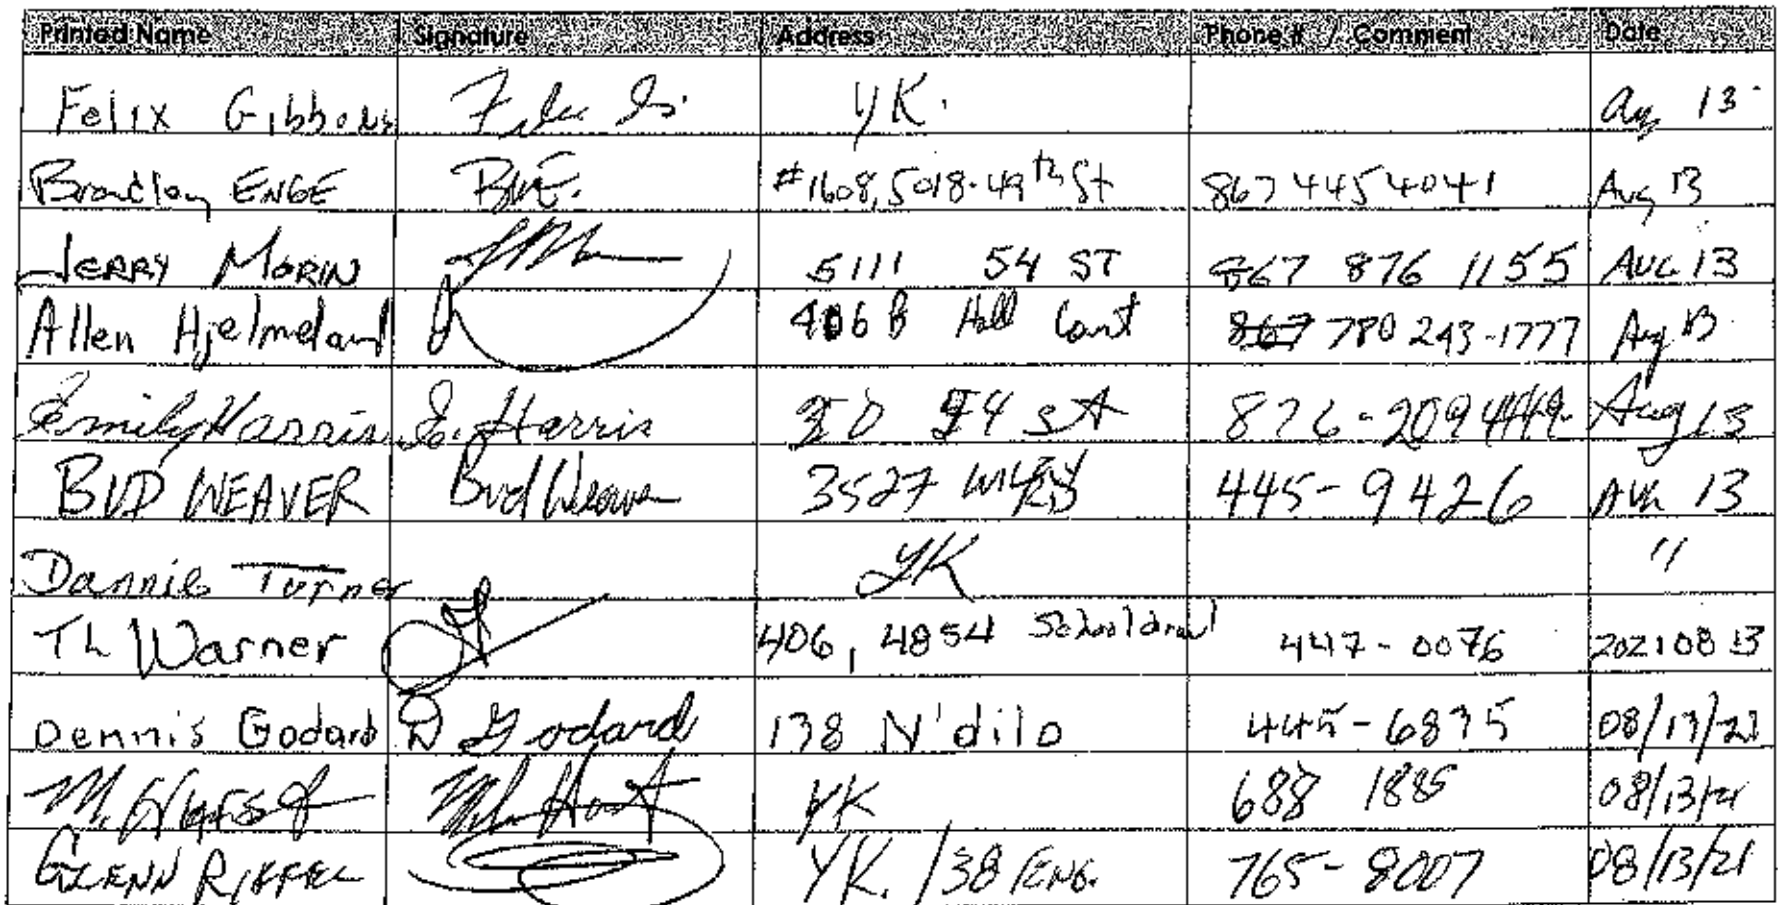 Printed Name Signature Address Phone # / Comment Date
Felix Gibbons YK. Aug 13
Bradley ENGE B.W.E. #1608, 5018-49th St 867 445 4041 Aug 13
JERRY MORIN 5111 54 ST 867 876 1155 AUG 13
Allen Hjelmeland 406 B Hall 867 780 243-1777 Aug 13
Emily Harris E. Harris 54 st 876-2094 Aug 13
BUD WEAVER Bud Weaver 3527 445-9426 AUG 13
Dannie Turner YK "
TL Warner 406, 4854 School draw 447-0076 20210813
Dennis Godard D Godard 138 N'dilo 445-6835 08/13/21
M. YK 688 1885 08/13/21
GLENN RIEFFEL YK. /38 ENG. 765-8007 08/13/21